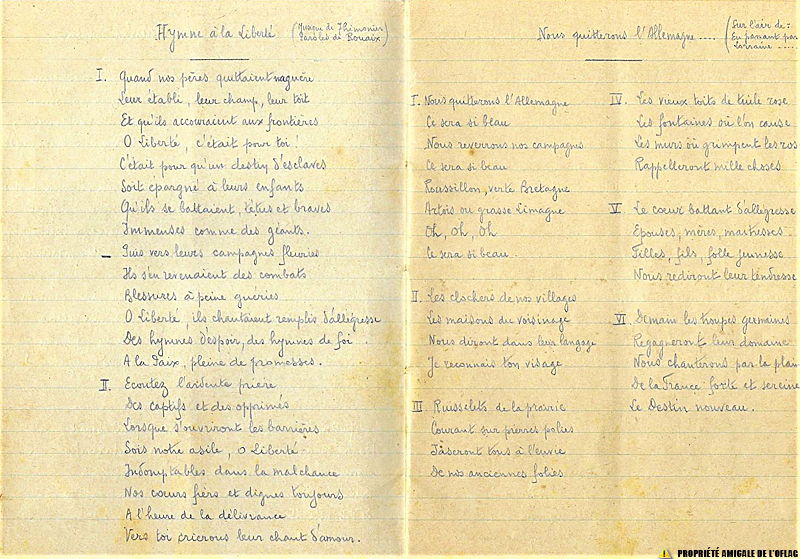 Hymne à la Liberté
(Musique de Thimonier
Paroles de Rouaix)
I. Quand nos pères quittaient naguère
Leur établi, leur champ, leur toit
Et qu'ils accouraient aux frontières
O Liberté, c'était pour toi !
C'était pour qu'un destin d'esclaves
Soit épargné à leurs enfants
Qu'ils se battaient, têtus et braves
Immenses comme des géants.
_ Puis vers leurs campagnes fleuries
Ils s'en revenaient des combats
Blessures à peine guéries
O Liberté, ils chantaient remplis d'allégresse
Des hymnes d'espoir, des hymnes de foi
A la Paix, pleine de promesses.
II. Ecoutez l'ardente prière
Des captifs et des opprimés
Lorsque s'ouvriront les barrières
Sois notre asile, O Liberté
Indomptables dans la malchance
Nos cœurs fiers et dignes toujours
A l'heure de la délivrance
Vers toi crierons leur chant d'amour.
Nous quitterons l'Allemagne ....
(Sur l'air de :
En passant par
Lorraine .....)
I. Nous quitterons l'Allemagne
Ce sera si beau
Nous reverrons nos campagnes
Ce sera si beau
Roussillon, verte Bretagne
Artois ou grasse Limagne
Oh, Oh, Oh
Ce sera si beau.
II. Les clochers de nos villages
Les maisons du voisinage
Nous diront dans leur langage
Je reconnais ton visage
III. Ruisselets de la prairie
Courant sur pierres polies
Jaseront tous à l'envie
De nos anciennes folies
IV. Les vieux toits de tuile rose
Les fontaines où l'on cause
Les murs où grimpent les ros
Rappelleront mille choses
V. Le cœur battant d'allégresse
Epouses, mères, maîtresses
Filles, fils, folle jeunesse
Nous rediront leur tendresse
VI. Demain les troupes germaines
Regagneront leur domaine
Nous chanterons par la plain
De la France forte et sereine
Le Destin nouveau.
PROPRIÉTÉ AMICALE DE L'OFLAG